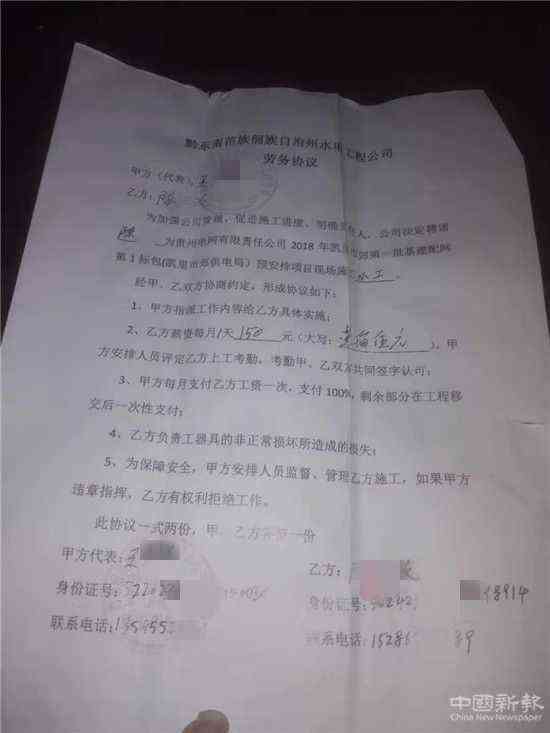 黔东南苗族侗族自治州水电工程公司
劳务协议
甲方（代表）：王
乙方：陈
为加强公司管理，促进施工进度、明确责任人、公司决定聘请
陈 为贵州电网有限责任公司2018年凯里 第一批基建配网
第1标包(凯里市郊供电局）预安排项目现场施工 水工 。
经甲、乙双方协商约定，形成协议如下：
1、甲方指派工作内容给乙方具体实施；
2、乙方薪资每月/天 150 元（大写：壹佰伍元 ），甲
方安排人员评定乙方上工考勤，考勤甲、乙双方共同签字认可；
3、甲方每月支付乙方工资一次，支付100%，剩余部分在工程移
交后一次性支付；
4、乙方负责工器具的非正常损坏所造成的损失；
5、为保障安全，甲方安排人员监督、管理乙方施工，如果甲方
违章指挥，乙方有权利拒绝工作。
此协议一式两份，甲、乙方各 一份
甲方代表：王
乙方：
身份证号：
身份证号： 8914
联系电话：
联系电话：15286 89
中國新報
China New Newspaper